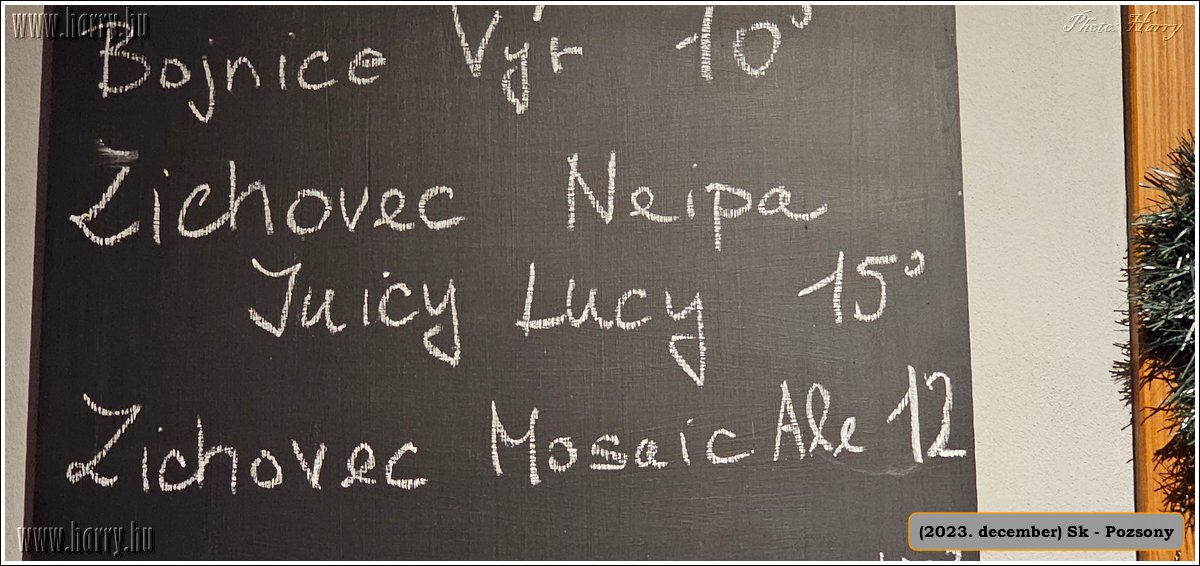 www.harry.hu
Photo: Harry
Bojnice Výr 10°
Zichovec Neipa
Juicy Lucy 15°
Zichovec Mosaic Ale 12
(2023. december) Sk - Pozsony
www.harry.hu